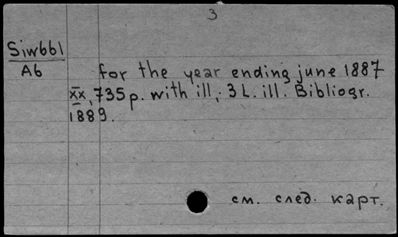 3
Siw661
A6
for the year ending june 1887
XX, 735 p. with ill.; 3 L. ill. Bibliogr.
1889.
см. след. карт.